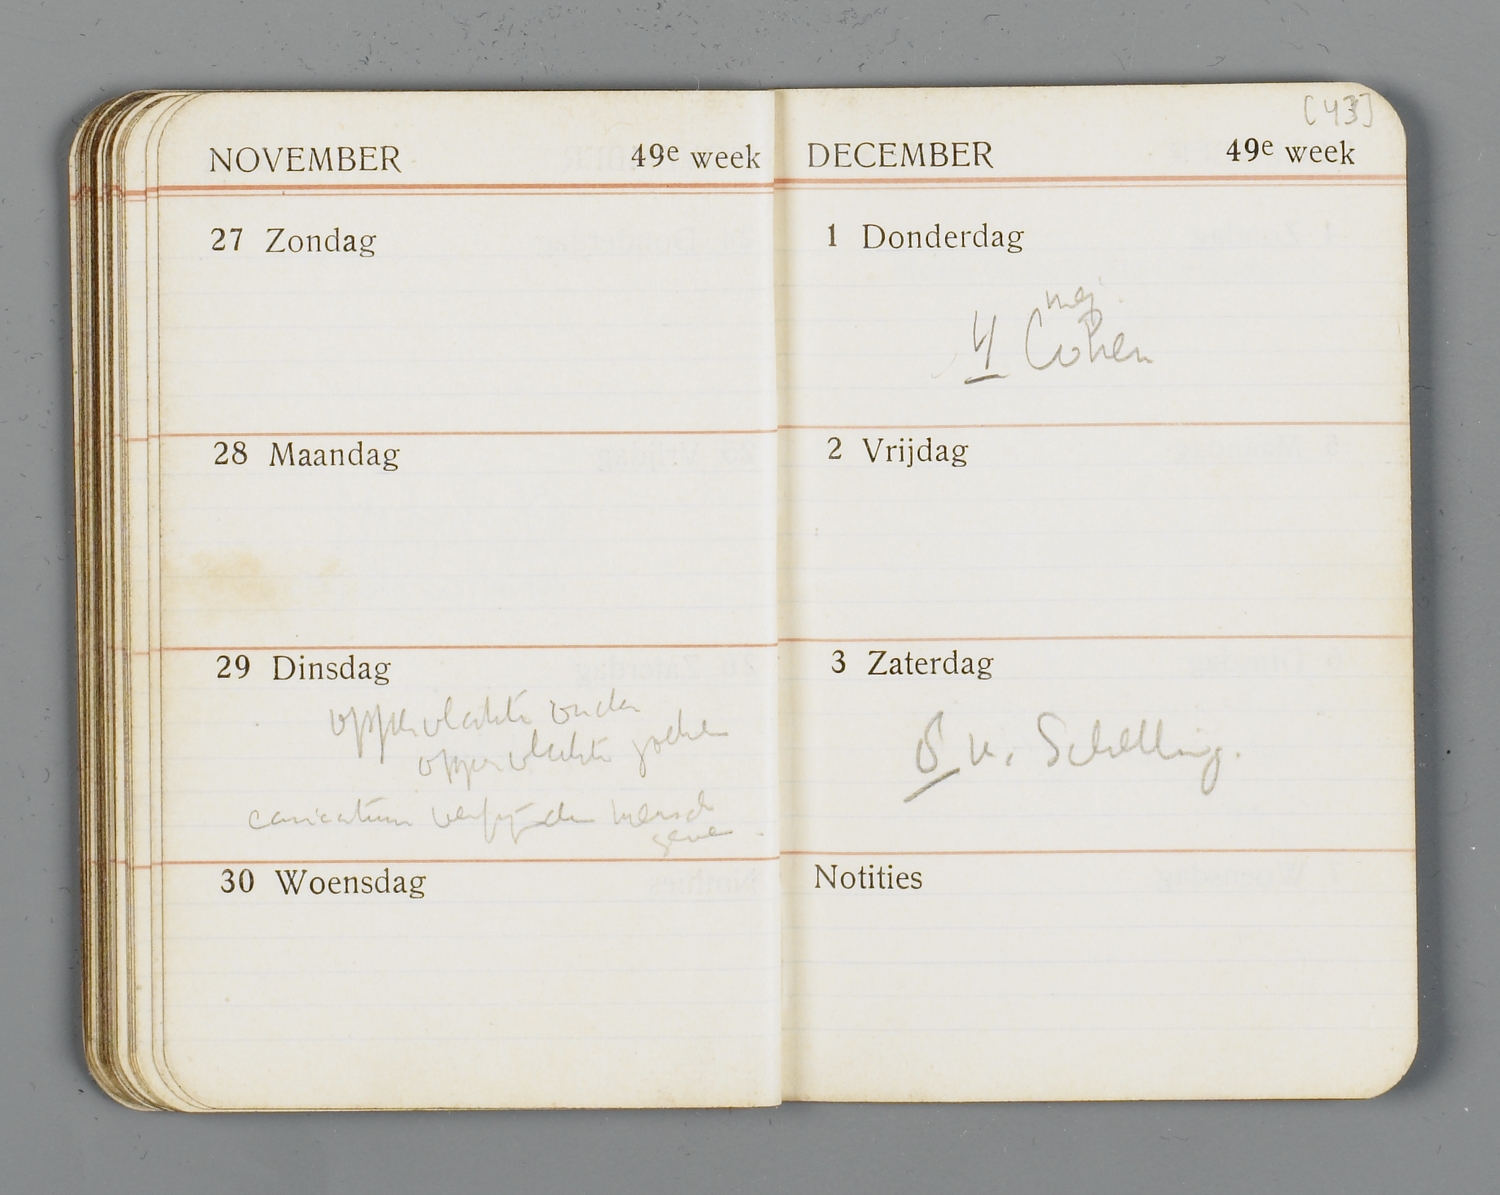 NOVEMBER 49e week
27 Zondag
28 Maandag
29 Dinsdag
oppervlakte onder
oppervlakte zoeken
mensch
geven
30 Woensdag
[43]
DECEMBER 49e week
1 Donderdag
mej.
4 Cohen
2 Vrijdag
3 Zaterdag
v. Schelling.
Notities